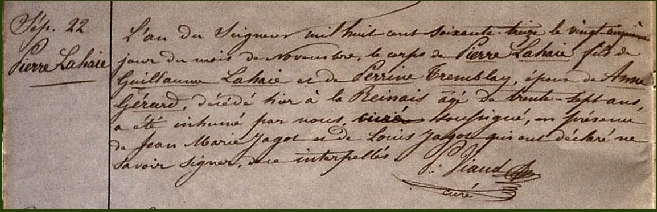 Sép. 22
Pierre Lahaie
L'an du Seigneur mil huit cent soixante-treize le vingt-cinquième
jour du mois de Novembre, le corps de Pierre Lahaie fils de
Guillaume Lahaie et de Perrine Tremblay, époux de Anne
Gérard, décédé hier à la Reinais âgé de trente-sept ans,
a été inhumé par nous, curé soussigné, en présence
de Jean Marie Jagot et de Louis Jagot qui ont déclaré ne
savoir signer, de ce interpellés
P. Viaud
curé